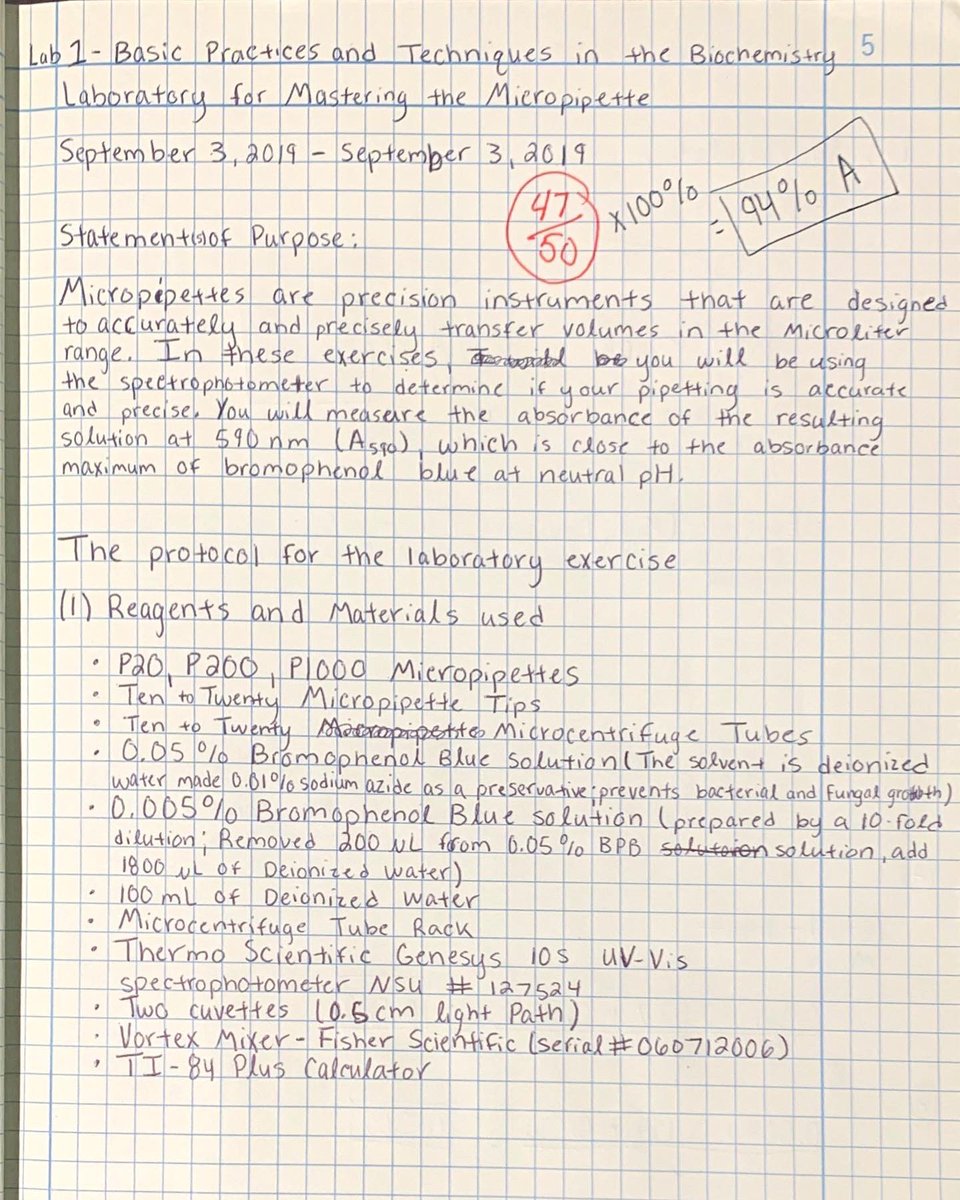 Lab 1 - Basic Practices and Techniques in the Biochemistry 5
Laboratory for Mastering the Micropipette
September 3, 2019 - September 3, 2019
47/50 x100% = 94% A
Statement(s) of Purpose:
Micropipettes are precision instruments that are designed
to accurately and precisely transfer volumes in the Microliter
range. In these exercises, you will be using
the spectrophotometer to determine if your pipetting is accurate
and precise. You will measure the absorbance of the resulting
solution at 590 nm (A590), which is close to the absorbance
maximum of bromophenol blue at neutral pH.
The protocol for the laboratory exercise
(1) Reagents and Materials used
· P20, P200, P1000 Micropipettes
· Ten to Twenty Micropipette Tips
· Ten to Twenty Micropipette Microcentrifuge Tubes
· 0.05% Bromophenol Blue solution (The solvent is deionized
water made 0.01% sodium azide as a preservative; prevents bacterial and fungal growth)
· 0.005% Bromophenol Blue solution (prepared by a 10-fold
dilution; Removed 200 uL from 0.05% BPB solution, add
1800 uL of Deionized water)
· 100 mL of Deionized water
· Microcentrifuge Tube Rack
· Thermo Scientific Genesys 10S UV-Vis
spectrophotometer NSU # 127524
· Two cuvettes (0.5 cm light Path)
· Vortex Mixer - Fisher Scientific (serial # 060712006)
· TI-84 Plus Calculator